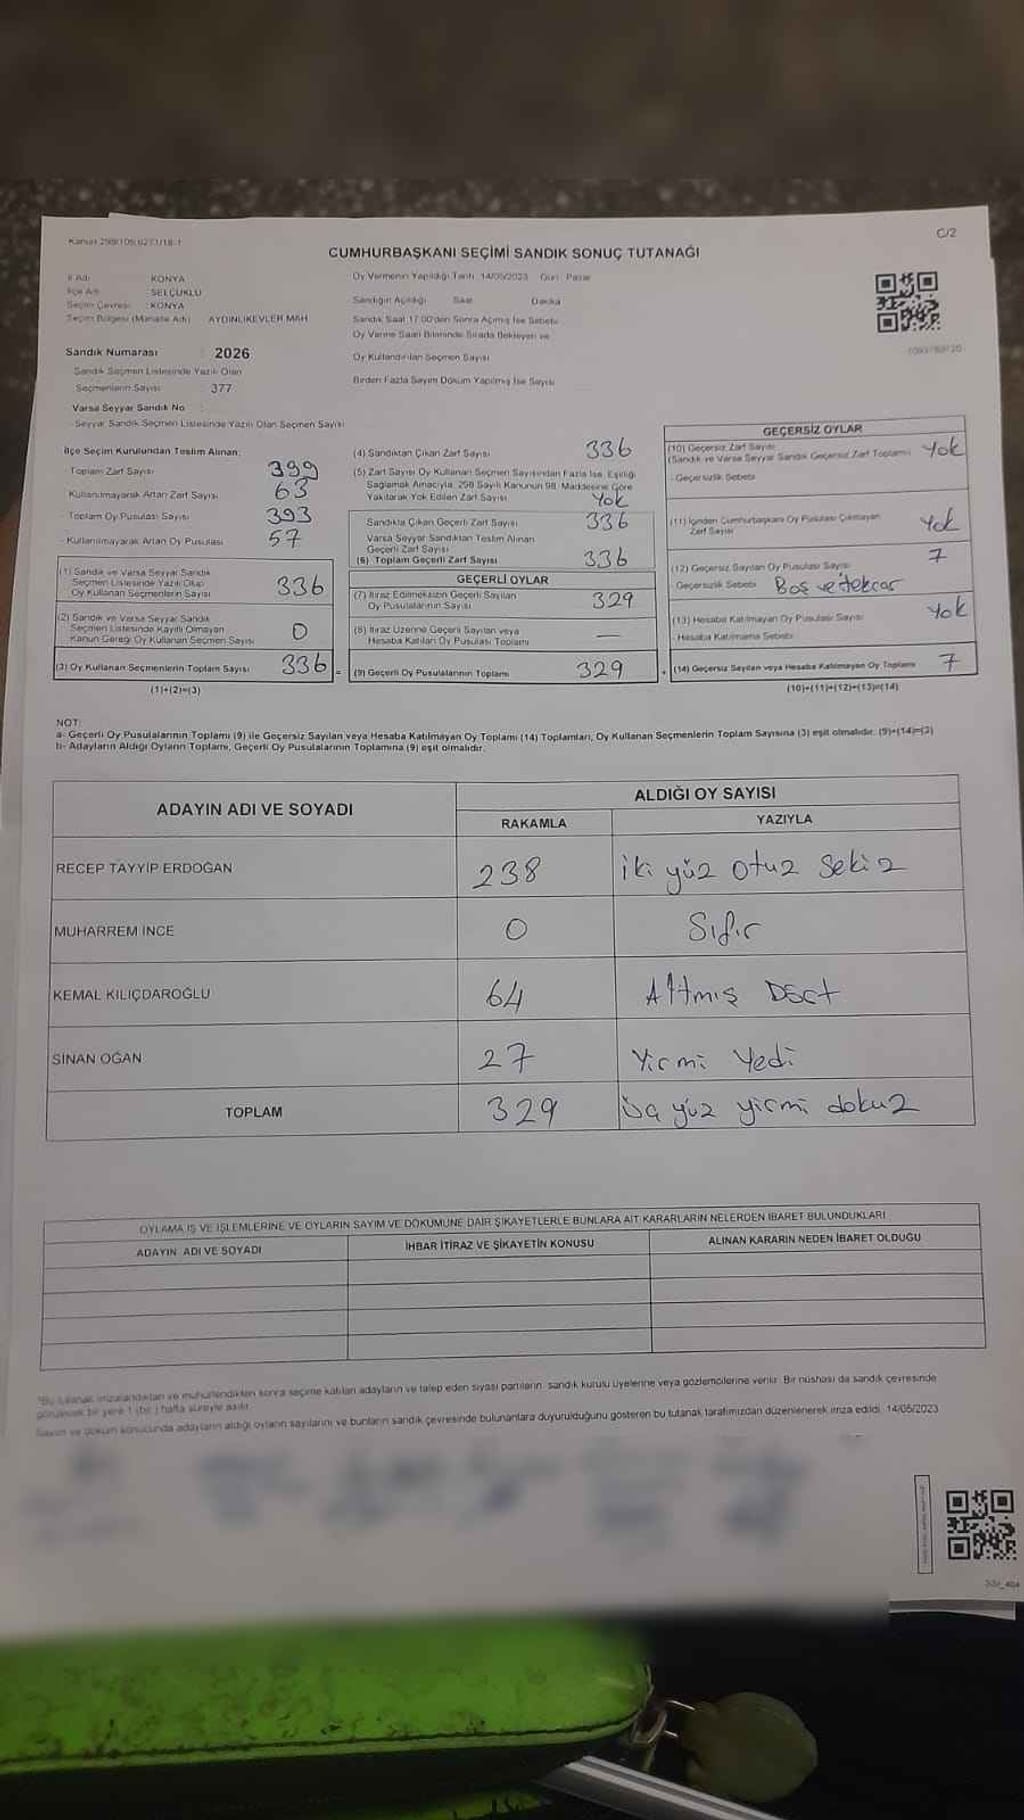 Kanun 298/105;6271/18-1
C/2
CUMHURBAŞKANI SEÇİMİ SANDIK SONUÇ TUTANAĞI
İl Adı KONYA
İlçe Adı SELÇUKLU
Seçim Çevresi : KONYA
Seçim Bölgesi (Mahalle Adı) AYDINLIKEVLER MAH
Sandık Numarası : 2026
Sandık Seçmen Listesinde Yazılı Olan
Seçmenlerin Sayısı 377
Varsa Seyyar Sandık No :
Seyyar Sandık Seçmen Listesinde Yazılı Olan Seçmen Sayısı
Oy Vermenin Yapıldığı Tarih 14/05/2023 Gün: Pazar
Sandığın Açıldığı Saat Dakika
Sandık Saat 17:00'den Sonra Açılmış İse Sebebi
Oy Verme Saati Bitiminde Sırada Bekleyen ve
Oy Kullandırılan Seçmen Sayısı
Birden Fazla Sayım Döküm Yapılmış İse Sayısı
İlçe Seçim Kurulundan Teslim Alınan:
Toplam Zarf Sayısı 399
Kullanılmayarak Artan Zarf Sayısı 63
Toplam Oy Pusulası Sayısı 393
Kullanılmayarak Artan Oy Pusulası 57
(1) Sandık ve Varsa Seyyar Sandık
Seçmen Listesinde Yazılı Olup
Oy Kullanan Seçmenlerin Sayısı 336
(2) Sandık ve Varsa Seyyar Sandık
Seçmen Listesinde Kayıtlı Olmayan
Kanun Gereği Oy Kullanan Seçmen Sayısı 0
(3) Oy Kullanan Seçmenlerin Toplam Sayısı 336 =
(1)+(2)=(3)
(4) Sandıktan Çıkan Zarf Sayısı 336
(5) Zarf Sayısı Oy Kullanan Seçmen Sayısından Fazla İse, Eşitliği
Sağlamak Amacıyla, 298 Sayılı Kanunun 98. Maddesine Göre
Yakılarak Yok Edilen Zarf Sayısı Yok
Sandıkta Çıkan Geçerli Zarf Sayısı 336
Varsa Seyyar Sandıktan Teslim Alınan
Geçerli Zarf Sayısı
(6) Toplam Geçerli Zarf Sayısı 336
GEÇERLİ OYLAR
(7) İtiraz Edilmeksizin Geçerli Sayılan
Oy Pusulalarının Sayısı 329
(8) İtiraz Üzerine Geçerli Sayılan veya
Hesaba Katılan Oy Pusulası Toplamı —
(9) Geçerli Oy Pusulalarının Toplamı 329 +
GEÇERSİZ OYLAR
(10) Geçersiz Zarf Sayısı
(Sandık ve Varsa Seyyar Sandık Geçersiz Zarf Toplamı) Yok
Geçersizlik Sebebi
(11) İçinden Cumhurbaşkanı Oy Pusulası Çıkmayan
Zarf Sayısı Yok
(12) Geçersiz Sayılan Oy Pusulası Sayısı 7
Geçersizlik Sebebi Boş ve tekrar
(13) Hesaba Katılmayan Oy Pusulası Sayısı Yok
Hesaba Katılmama Sebebi
(14) Geçersiz Sayılan veya Hesaba Katılmayan Oy Toplamı 7
(10)+(11)+(12)+(13)=(14)
NOT:
a- Geçerli Oy Pusulalarının Toplamı (9) ile Geçersiz Sayılan veya Hesaba Katılmayan Oy Toplamı (14) Toplamları, Oy Kullanan Seçmenlerin Toplam Sayısına (3) eşit olmalıdır. (9)+(14)=(3)
b- Adayların Aldığı Oyların Toplamı, Geçerli Oy Pusulalarının Toplamına (9) eşit olmalıdır.
ADAYIN ADI VE SOYADI
ALDIĞI OY SAYISI
RAKAMLA YAZIYLA
RECEP TAYYİP ERDOĞAN 238 iki yüz otuz sekiz
MUHARREM İNCE 0 Sıfır
KEMAL KILIÇDAROĞLU 64 Altmış Dört
SİNAN OĞAN 27 Yirmi Yedi
TOPLAM 329 üç yüz yirmi dokuz
OYLAMA İŞ VE İŞLEMLERİNE VE OYLARIN SAYIM VE DÖKÜMÜNE DAİR ŞİKAYETLERLE BUNLARA AİT KARARLARIN NELERDEN İBARET BULUNDUKLARI
ADAYIN ADI VE SOYADI İHBAR İTİRAZ VE ŞİKAYETİN KONUSU ALINAN KARARIN NEDEN İBARET OLDUĞU
*Bu tutanak imzalandıktan ve mühürlendikten sonra seçime katılan adayların ve talep eden siyasi partilerin sandık kurulu üyelerine veya gözlemcilerine verilir. Bir nüshası da sandık çevresinde
görülecek bir yere 1 (bir) hafta süreyle asılır.
Sayım ve döküm sonucunda adayların aldığı oyların sayılarını ve bunların sandık çevresinde bulunanlara duyurulduğunu gösteren bu tutanak tarafımızdan düzenlenerek imza edildi. 14/05/2023